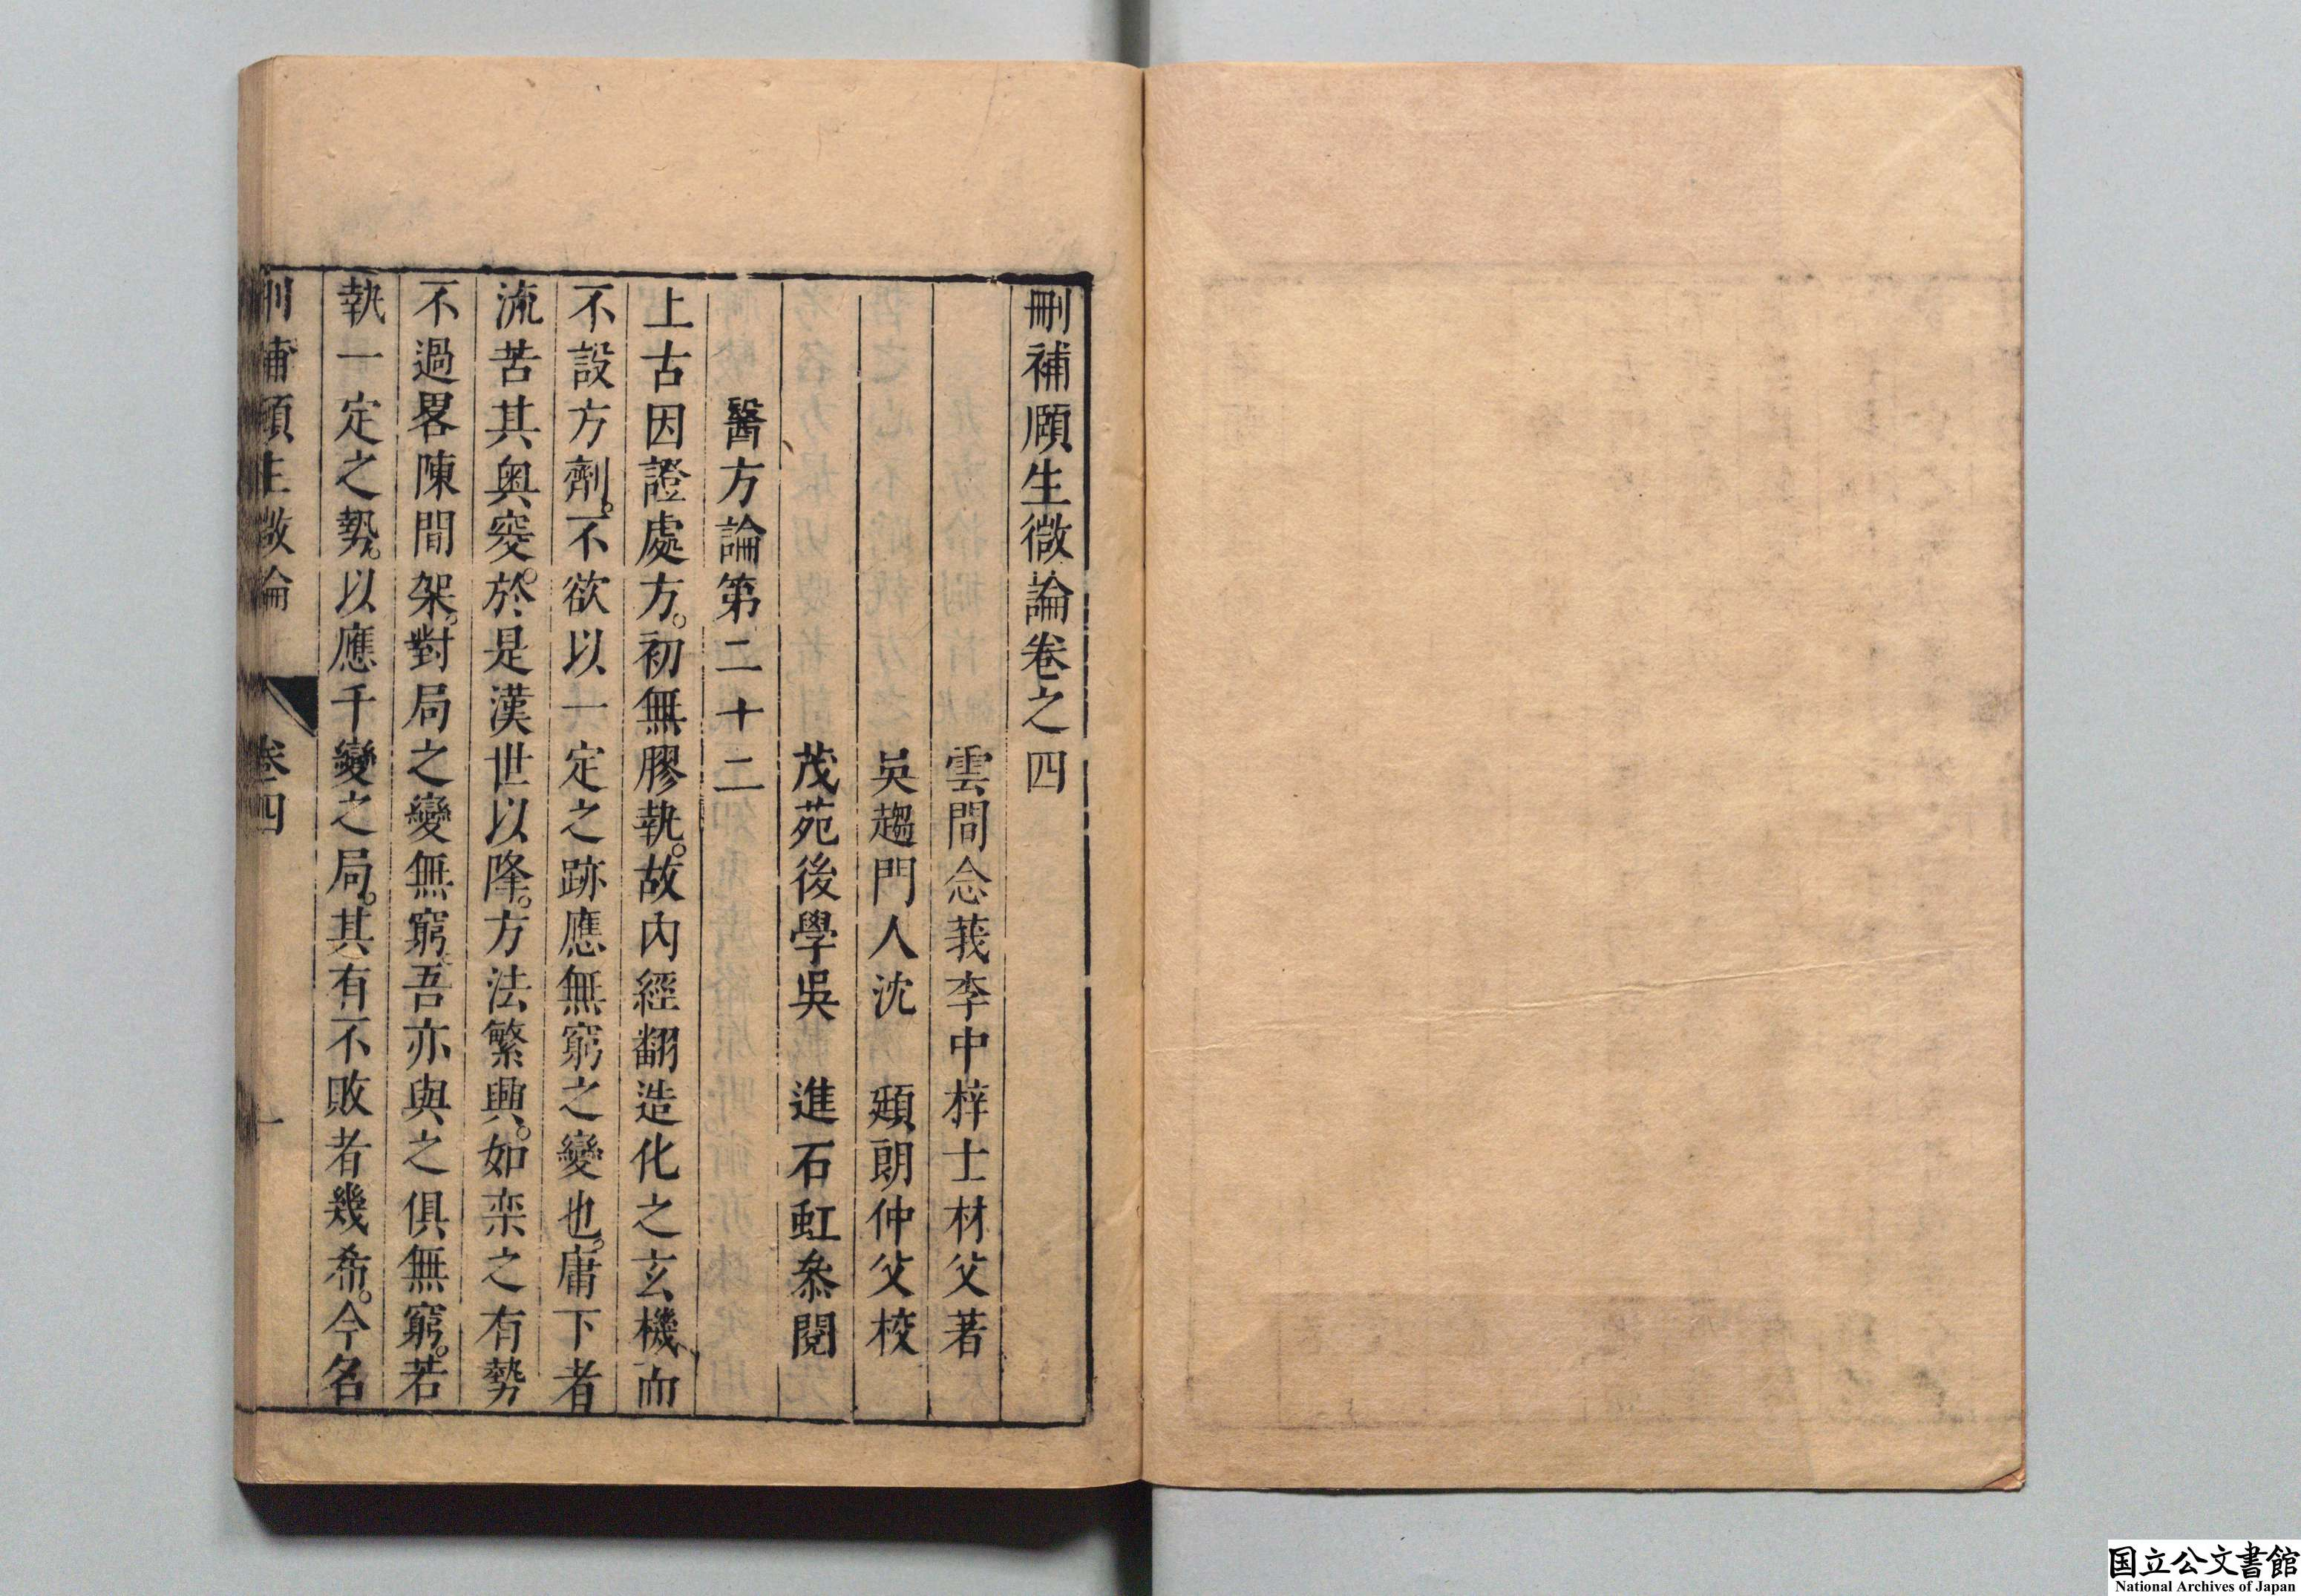 刪補頤生微論卷之四
雲間念莪李中梓士材父著
吳趨門人沈　頲朗仲父校
茂苑後學吳　進石虹叅閱
醫方論第二十二
上古因證處方。初無膠執。故內經翻造化之玄機而
不設方劑。不欲以一定之跡應無窮之變也。庸下者
流苦其奥窔。於是漢世以降。方法繁興。如奕之有勢
不過畧陳間架。對局之變無窮。吾亦與之俱無窮。若
執一定之勢。以應千變之局。其有不敗者幾希。今名
刪補頤生微論
卷四
一
国立公文書館
National Archives of Japan